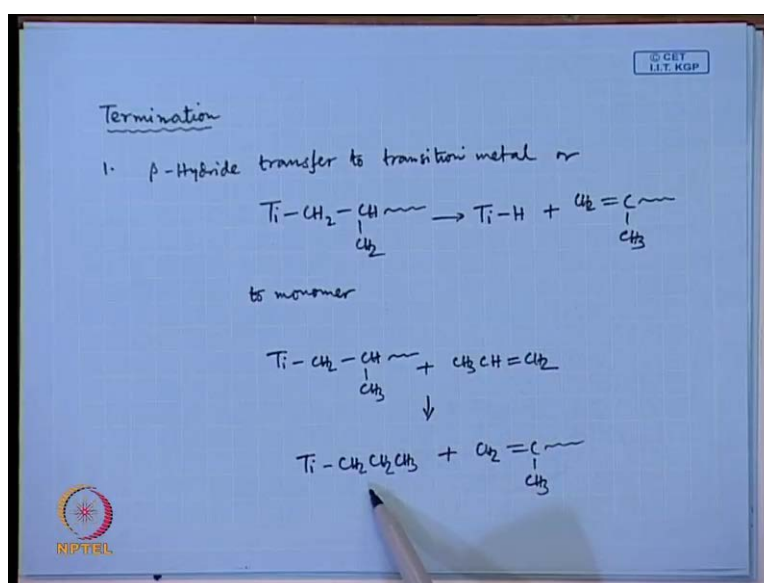 © CET
I.I.T. KGP
Termination
1. β-Hydride transfer to transition metal or
Ti-CH2-CH~~~ → Ti-H + CH2=C~~~
CH2 CH3
to monomer
Ti-CH2-CH~~ + CH3CH=CH2
CH3
↓
Ti-CH2CH2CH3 + CH2=C~~~
CH3
NPTEL